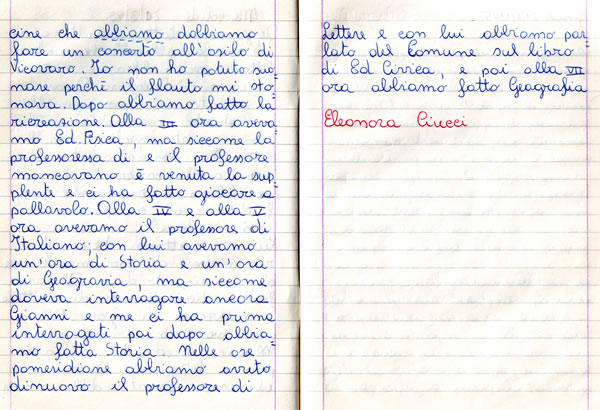 cine che abbiamo dobbiamo
fare un concerto all'asilo di
Vicovaro. Io non ho potuto suo=
nare perchè il flauto mi sto=
nava. Dopo abbiamo fatto la
ricreazione. Alla III ora aveva
mo Ed. Fisica, ma siccome la
professoressa di e il professore
mancavano è venuta la sup=
plente e ci ha fatto giocare a
pallavolo. Alla IV e alla V
ora avevamo il professore di
Italiano; con lui avevamo
un'ora di Storia e un'ora
di Geogravia, ma siccome
doveva interrogare ancora
Gianni e me ci ha prima
interrogati poi dopo abbia=
mo fatta Storia. Nelle ore
pomeridiane abbiamo avuto
dinuovo il professore di
Lettere e con lui abbiamo par=
lato del Comune sul libro
di Ed. Civica, e poi alla VII
ora abbiamo fatto Geografia
Eleonora Ciucci